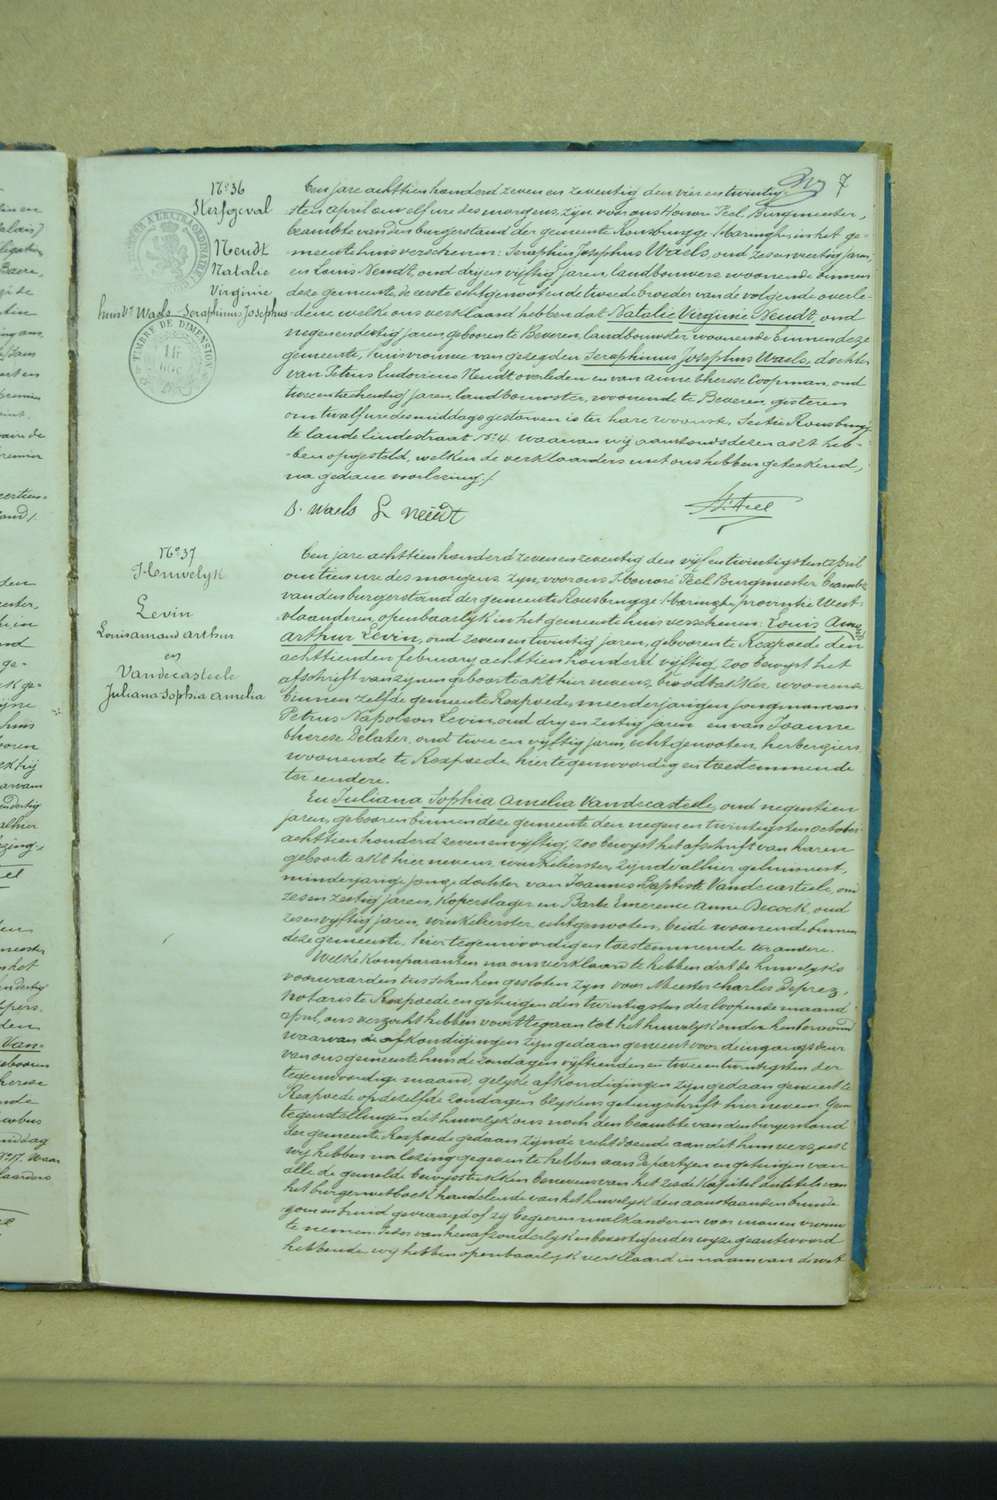 7
N° 36
Sterfgeval
Neudt
Natalie
Virginie
huisv. Waels Seraphinus Josephus
TIMBRE DE DIMENSION
Een jare achttien honderd zeven en zeventig den vier en twintig-
sten april om elf ure des morgens, zijn voor ons Honoré Peel, Burgmeester,
beambte van den burgerstand der gemeente Rousbrugge Haringhe, in het ge-
meente huis verschenen: Seraphin Josephus Waels, oud zes en veertig jaren,
en Louis Neudt, oud dry en vyftig jaren, landbouwers woonende binnen
deze gemeente, de eerste echtgenoot en de tweede broeder van de volgende overle-
dene welke ons verklaard hebben dat Natalie Virginie Neudt, oud
negen en dertig jaren, geboren te Beveren, landbouwster, woonende binnen deze
gemeente, huisvrouwe van gezegden Seraphinus Josephus Waels, dochter
van Petrus Ludovicus Neudt overleden en van Anne Therese Coopman, oud
twee en tachentig jaren, landbouwster, woonende te Beveren, gisteren
om twalf ure des middags gestorven is ter hare woonst, Sectie Rousbrugge
te lande lindestraat N° 4 waarvan wij aanstonds dezen akt heb-
ben opgesteld, welken de verklaarders met ons hebben geteekend,
na gedane voorlezing./
S. Waels L Neudt
N° 37
Huwelyk
Levin
Louis amand Arthur
en
Vandecasteele
Juliana Sophia Amelia
Een jare achttien honderd zeven en zeventig den vijf en twintigsten april
om tien ure des morgens zyn, voor ons Honoré Peel Burgmeester beambte
van den burgerstand der gemeente Rousbrugge Haringhe, provintie West-
vlaanderen, openbaarlyk in het gemeente huis verschenen: Louis Amand
Arthur Levin, oud zeven en twintig jaren, geboren te Rexpoede den
achttienden february achttien honderd vyftig, zoo bewyst het
afschrift van zynen geboorte akt hier nevens, broodbakker, woonende
binnen zelfde gemeente Rexpoede, meerderjarigen jongman van
Petrus Napoleon Levin, oud dry en zestig jaren en van Joanne
Therese Delater, oud twee en vyftig jaren, echtgenooten, herbergiers
woonende te Rexpoede, hier tegenwoordig en toestemmende
ter eendere.
En Juliana Sophia Amelia Vandecasteele, oud negentien
jaren, geboren binnen deze gemeente den negen en twintigsten october
achttien honderd zeven en vyftig, zoo bewyst het afschrift van haren
geboorte akt hier nevens, winkelierster, zijnde alhier gehuisvest,
minderjarige jonge dochter van Joannes Baptiste Vandecasteele, oud
zes en zestig jaren, koperslager en Barbe Emerence Anne Decock, oud
zes en vyftig jaren, winkelierster, echtgenooten, beide woonende binnen
deze gemeente, hier tegenwoordig en toestemmende ter andere.
Welke komparanten na ons verklaard te hebben dat de huwelyks
voorwaarden tusschen hen gesloten zyn voor Meester Charles Deprez,
Notaris te Rexpoede en getuigen den twintigsten der loopende maand
april, ons verzocht hebben voort te gaan tot het huwelyk onder hen beraamd
waarvan de afkondigingen zyn gedaan geweest voor de ingangs deur
van ons gemeente huis de zondagen vyftienden en twee en twintigsten der
tegenwoordige maand, gelyke afkondigingen zyn gedaan geweest te
Rexpoede op dezelfde zondagen blykens getuigschrift hier nevens. Geene
tegenstellingen dit huwelyk ons noch den beambte van den burgerstand
der gemeente Rexpoede gedaan zijnde recht doende aan dit hun verzoek
wij hebben na lezing gegeven te hebben aan de partyen en getuigen van
alle de gemelde bewysstukken benevens van het zesde kapittel des titels van
het burger wetboek handelende van het huwelyk den aanstaanden bruide-
gom en bruid gevraagd of zy begeeren malkanderen voor man en vrouw
te nemen. Ieder van hen afzonderlyk en bevestigender wyze geantwoord
hebbende, wij hebben openbaarlyk verklaard in naam van de wet